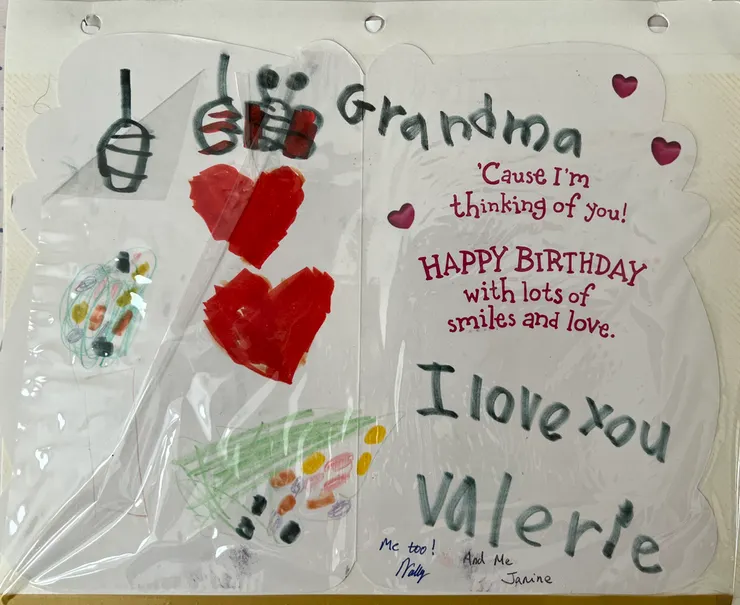 Grandma
'Cause I'm
thinking of you!
HAPPY BIRTHDAY
with lots of
smiles and love.
I love You
Valerie
Me too!
And Me
Wally
Janine